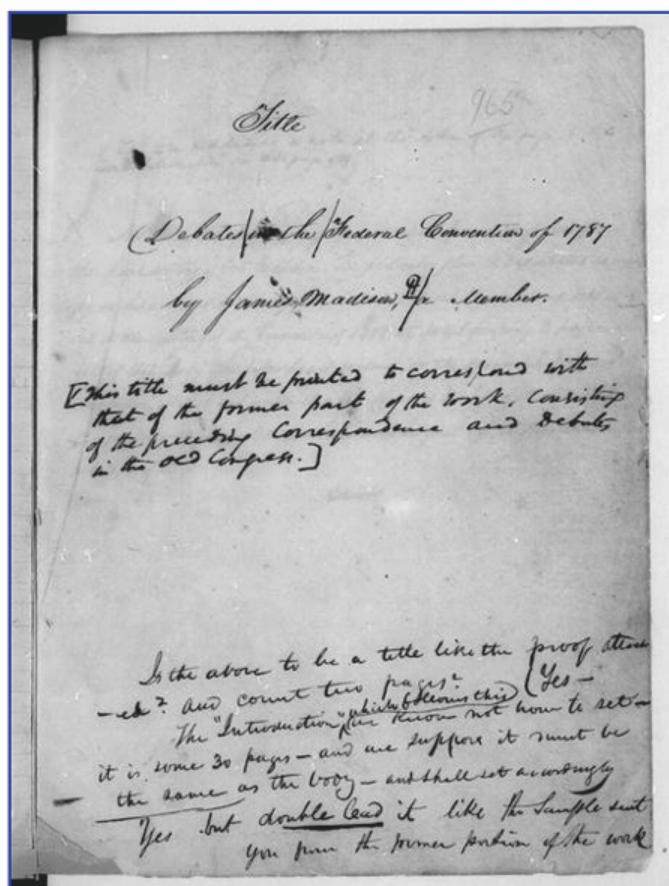 Title
965
Debates in the Federal Convention of 1787
by James Madison, a Member.
[This title must be printed to correspond with
that of the former part of the work, consisting
of the preceding Correspondence and Debates
in the old Congress.]
Is the above to be a title like the proof attach
-ed? and count two pages? (Yes-
which follows this
The "Introduction," we know not how to set-
it is some 30 pages - and we suppose it must be
the same as the body - and shall set accordingly
Yes but double lead it like the Sample sent
you from the former portion of the work